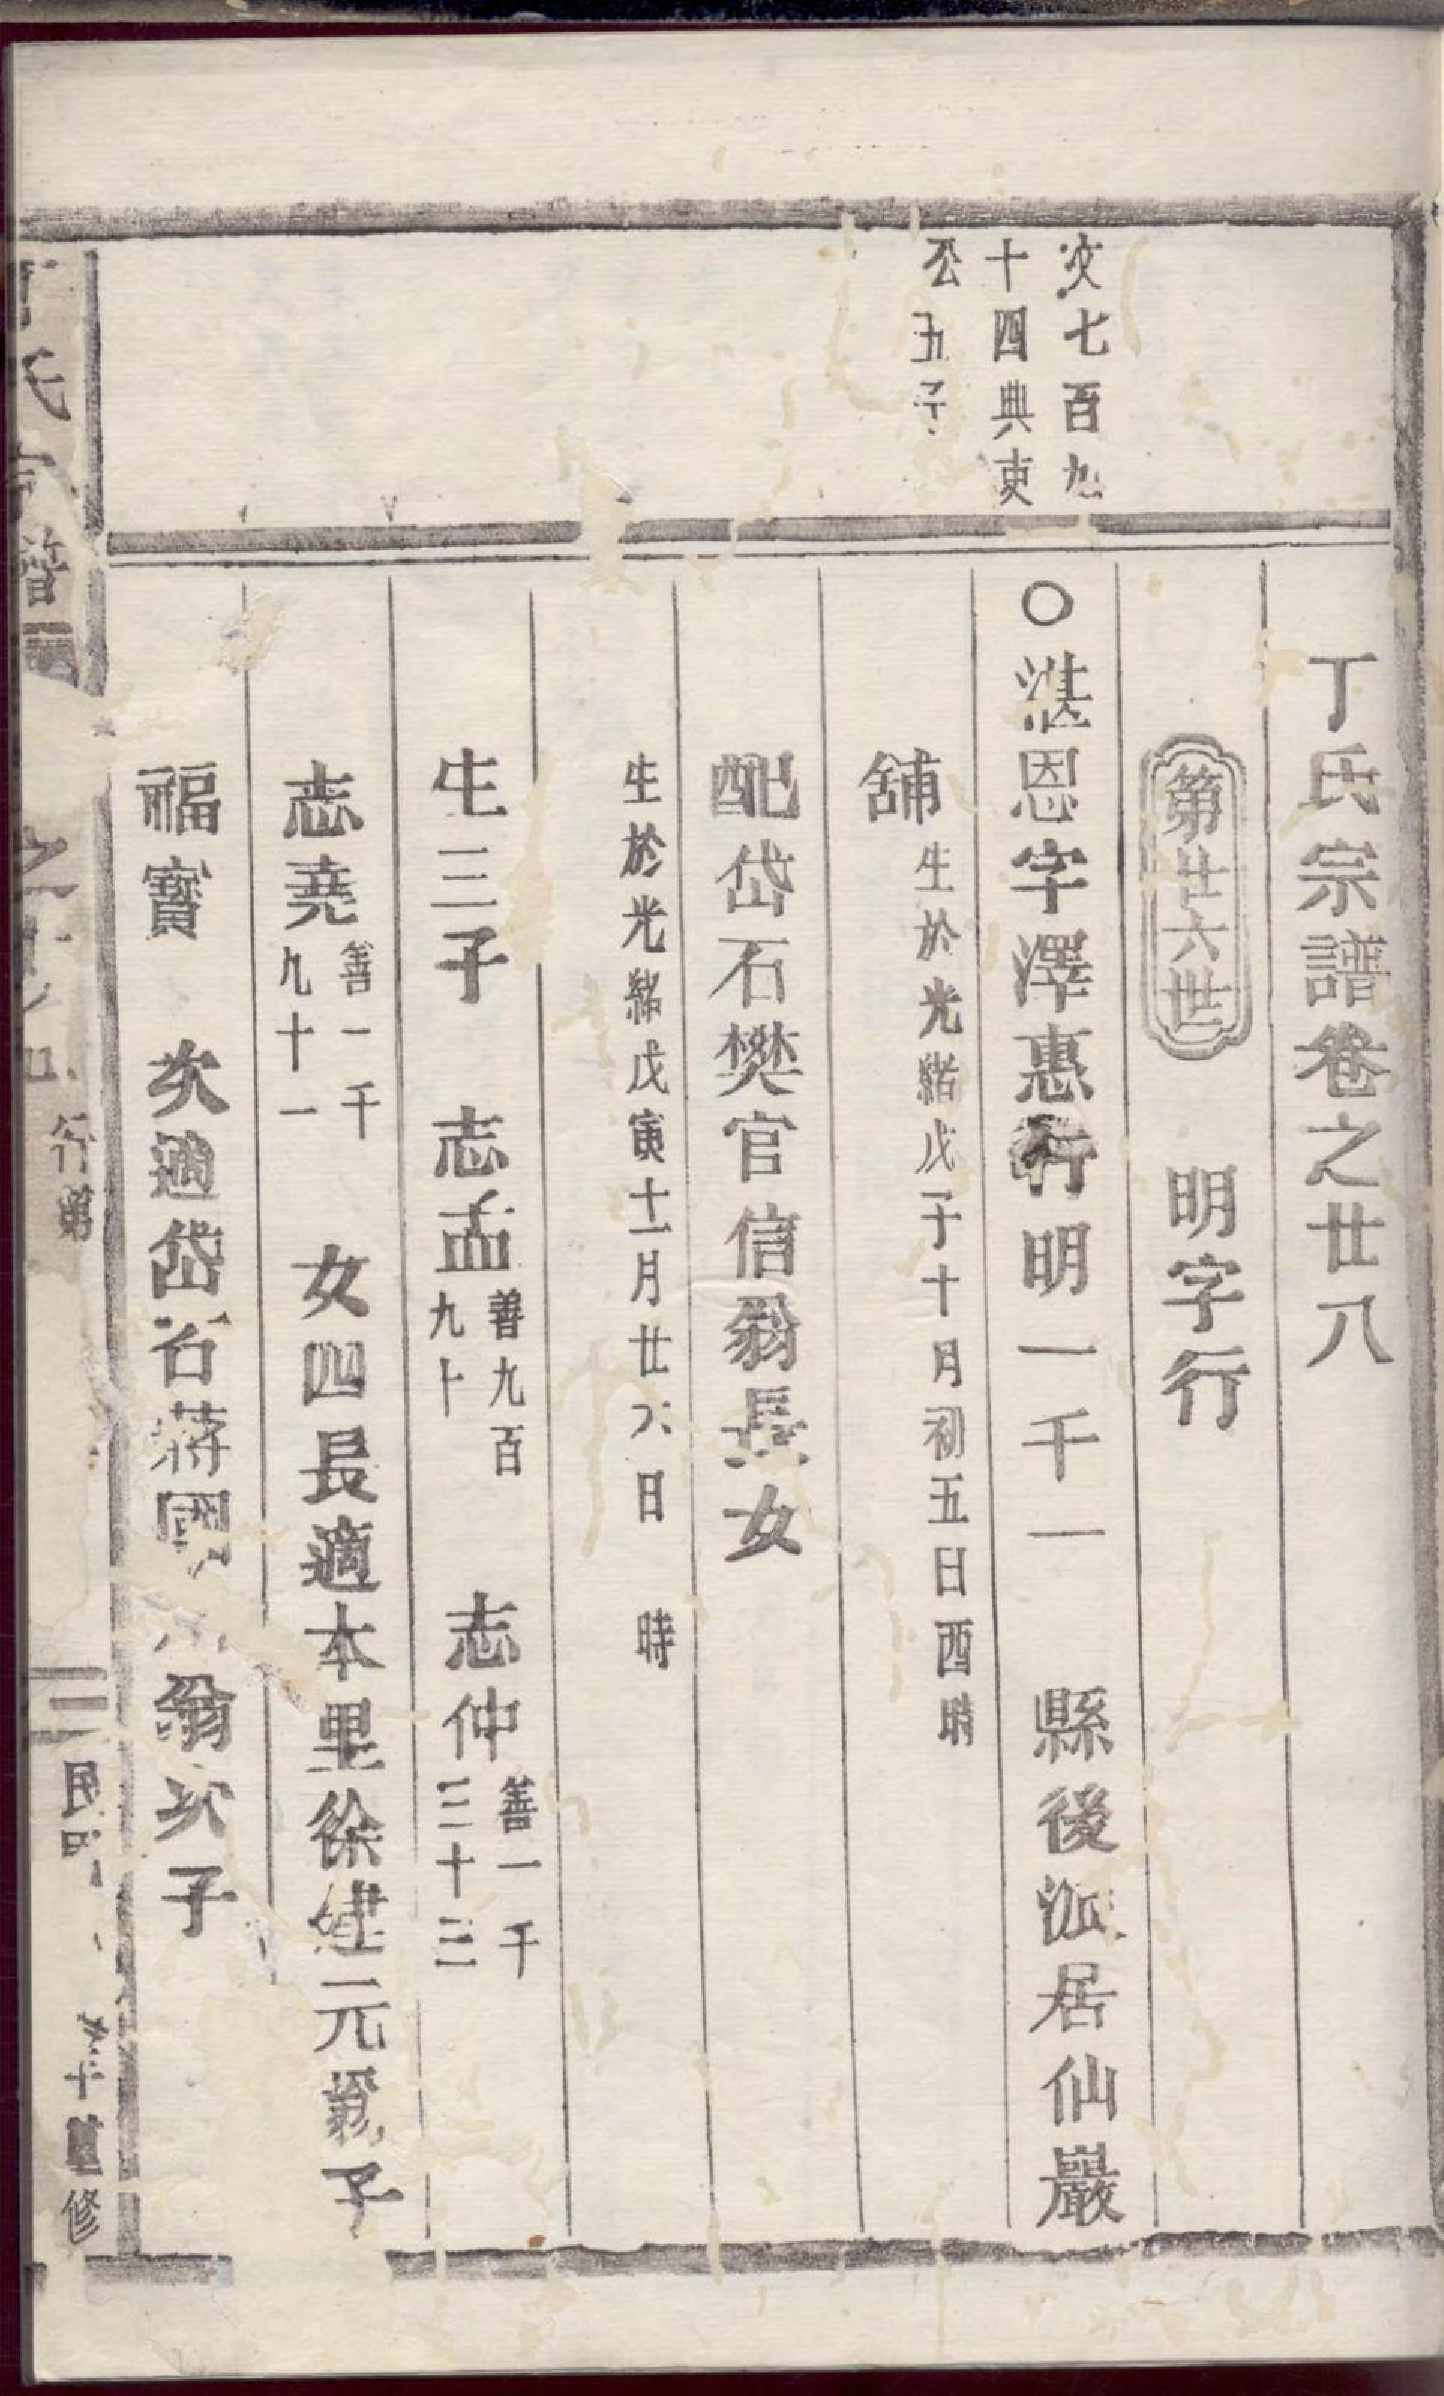 丁氏宗譜卷之廿八
第廿六世 明字行
文七百九
十四典吏
公五子
○湛恩字澤惠行明一千一 縣後派居仙巖
舖生於光緒戊子十月初五日酉時
配岱石樊官信翁長女
生於光緒戊寅十一月廿六日 時
生三子 志孟善九百九十 志仲善一千三十三
志堯善一千九十一 女四長適本里徐建元親子
福寶 次適岱石蔣國翁次子
氏宗譜
行第
民 重修